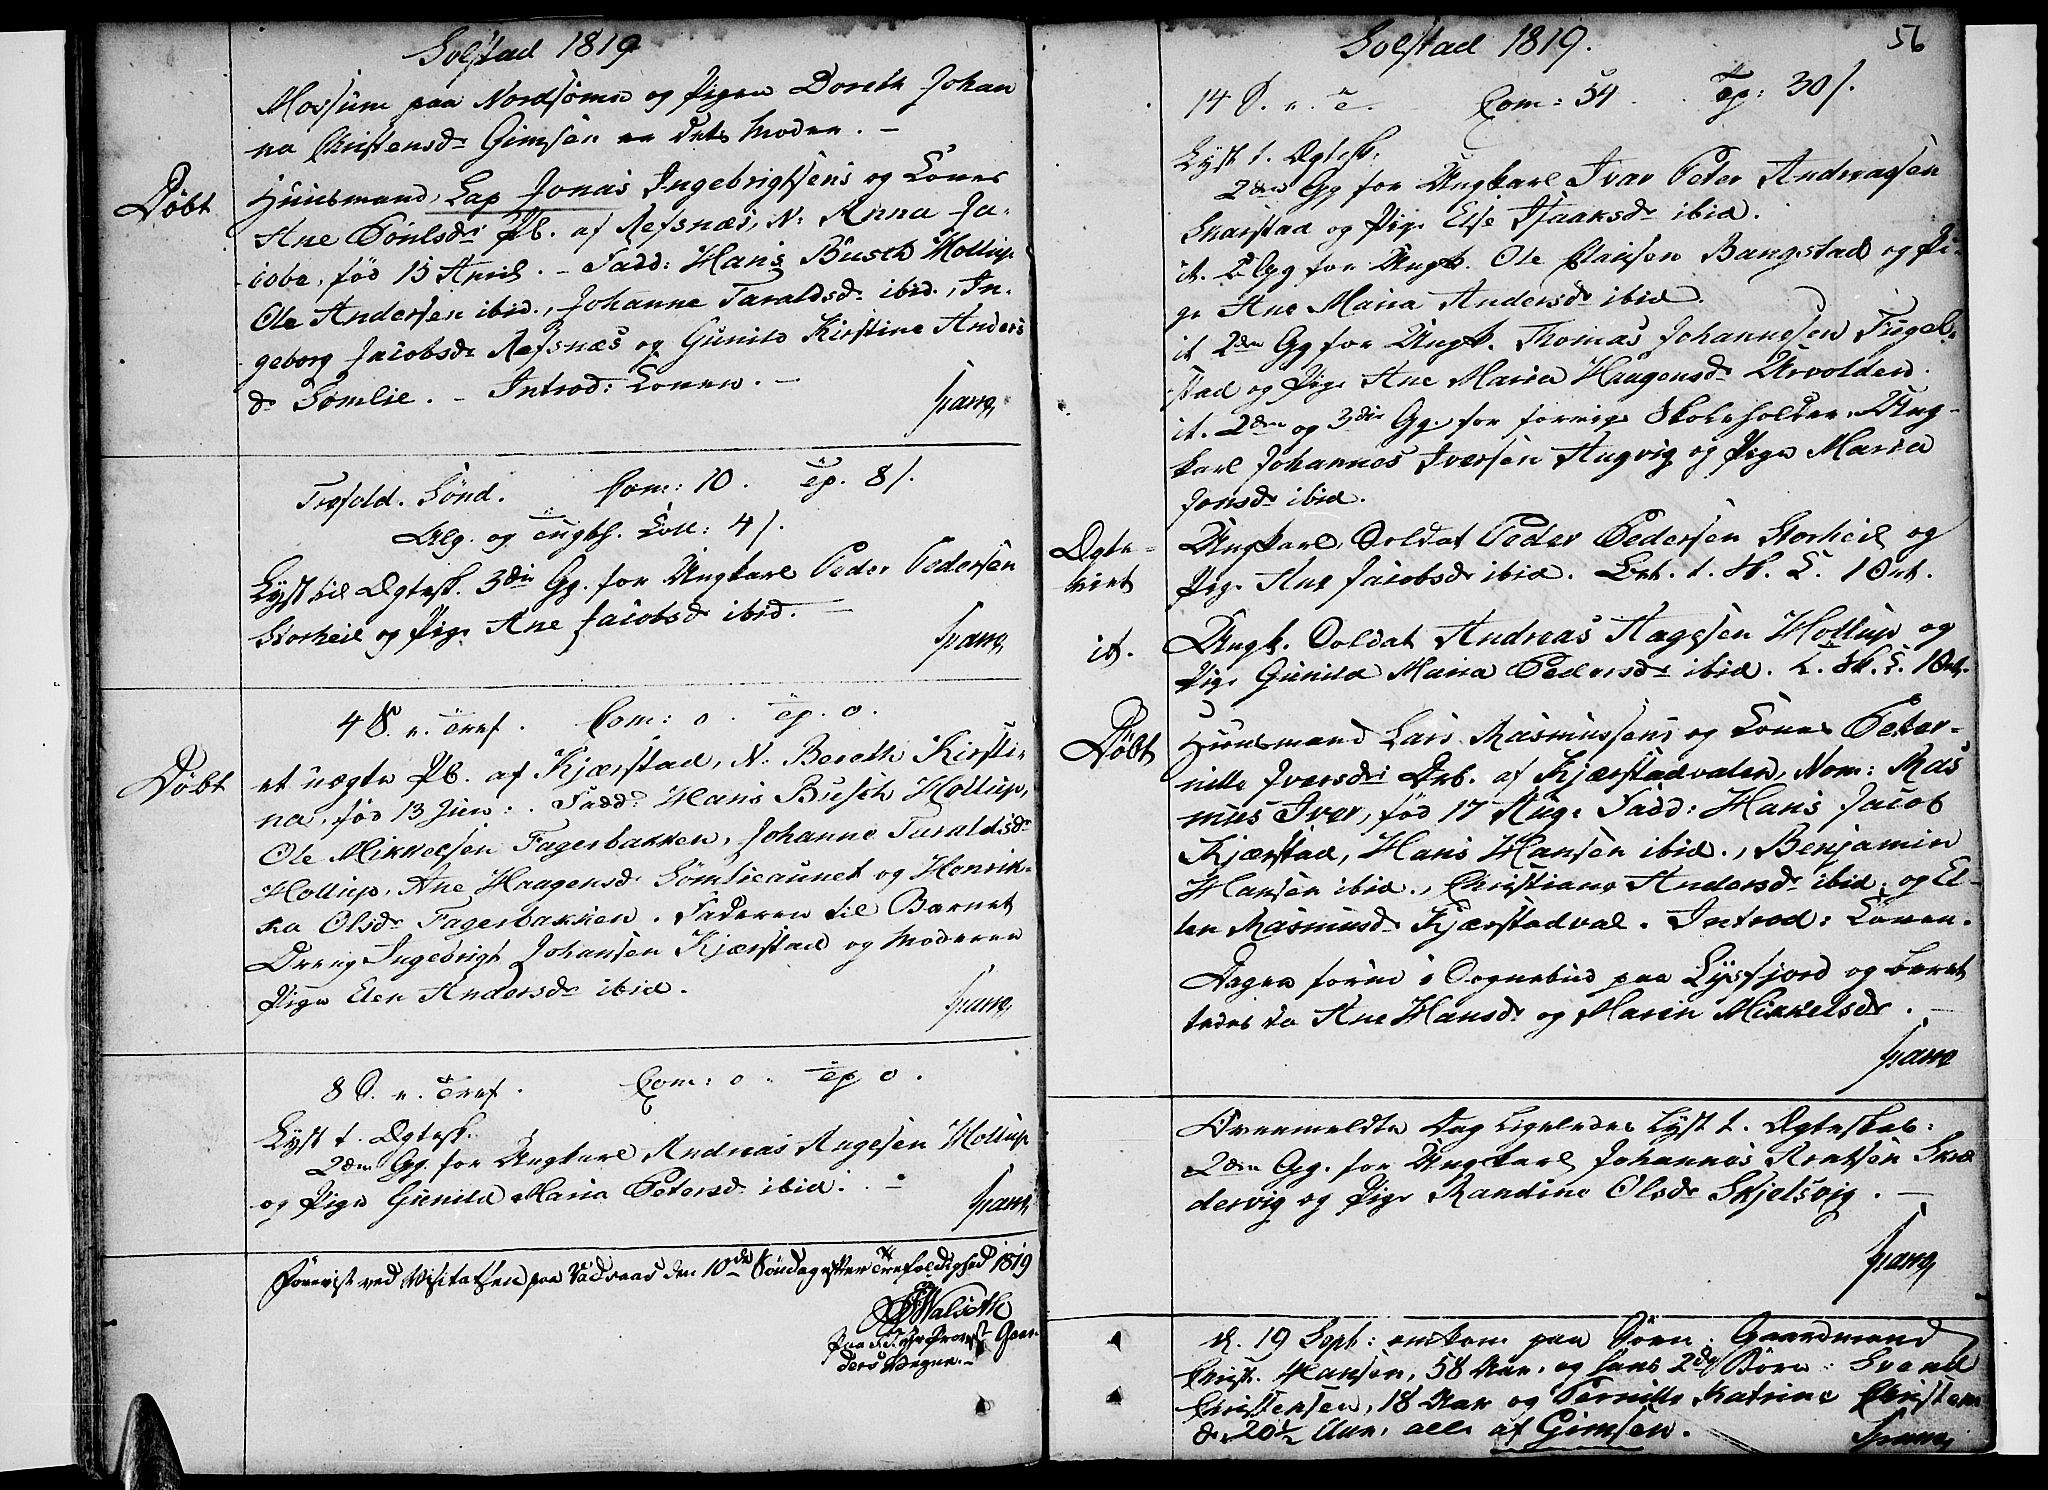 Solstad 1819
Mossum paa Nordsömn og Pigen Doreth Johan
na Christensdr Gimsen er dets Moder. –
Döbt
Huusmand, Lap Jonas Ingebrigtsens og Kones
Ane Poulsdr Pb. af Refsnæs, N: Anna Ja-
cobe, föd 15 April. – Fadd: Hans Busch Hollup
Ole Andersen ibid., Johanne Taraldsdr ibid., In-
geborg Jacobsdr Refsnæs og Gunild Kirstine Anders
dr Sömlie. – Introd: Konen. –
Spang
Trefold. Sönd. Com: 10. Ep. 8/.
Alg. og Coll: 4/.
Lyst til Ægtesk. 3die Gg. for Ungkarl Peder Pedersen
Storheil og Pige Ane Jacobsdr ibid. –
Spang
4 S. e. Tref. Com: 0. Ep. 0.
Döbt
et uægte Pb. af Kjærstad, N: Bereth Kirsti-
na, föd 13 Jun: . Fadd: Hans Busch Hollup,
Ole Mikkelsen Fagerbakken, Johanne Taraldsdr
Hollup, Ane Haagensdr Sömlieaunet og Henrik-
ka Olsdr Fagerbakken. Faderen til Barnet
Dreng Ingebrigt Johansen Kjærstad og Moderen
Pige Elen Andersdr ibid.
Spang
8 S. e. Tref. Com: 0. Ep 0.
Lyst t. Ægtesk.
2den Gg. for Ungkarl Andreas Aagesen Hollup
og Pige Gunild Maria Petersdr ibid. –
Spang
Foreviist ved Visitatsen paa Vadsaas den 10de Söndag efter Trefoldighed 1819
Walseth
paa Hr Provst Gaar-
ders Vegne. –
Solstad 1819. 56
14 S. e. T. Com: 54. Ep: 30/.
Lyst t. Ægtesk:
2den Gg for Ungkarl Ivar Peter Andreasen
Skarstad og Pige Else Isaaksdr ibid.
it. 2 Gg for Ungk. Ole Clausen Bangstad og Pi-
ge Ane Maria Andersdr ibid.
it 2den Gg for Ungk. Thomas Johannesen Tregel-
stad og Pige Ane Maria Haagensdr Urvolden.
it. 2den og 3die Gg. for forrige Skoleholder Ung-
karl Johannes Iversen Augvig og Pige Maria
Jonsdr ibid.
Ægte-
viet
Ungkarl, Soldat Peder Pedersen Storheil og
Pige Ane Jacobsdr ibid. Bet. t. Sk. C. 1 Ort.
it.
Ungk. Soldat Andreas Aagesen Hollup og
Pige Gunild Maria Pedersdr ibid. t. Sk. C. 1 Ort.
Döbt
Huusmand Lars Rasmussens og Kones Peter-
nille Iversdr Drb. af Kjærstadvalen, Nom: Ras
mus Iver, föd 17 Aug. Fadd: Hans Jacob
Kjærstad, Hans Hansen ibid., Benjamin
Hansen ibid., Christiane Andersdr ibid. og El-
len Rasmusdr Kjærstadval. Introd: Konen.
Dagen forud i Sognebud paa Lysfjord og beret
tedes da Ane Hansdr og Maren Mikkelsdr. –
Spang
Ovenmeldte Dag ligeledes Lyst t. Ægteskab:
2den Gg. for Ungkarl Johannes Arntsen Skil
dervig og Pige Randine Olsdr Skjelsvig. –
Spang
d. 19 Sept: omkom paa Söen: Gaardmand
Christ. Hansen, 58 Aar, og hans 2de Börn: Svend
Christensen, 18 Aar og Pernille Katrine Christens
dr 20½ Aar, alle af Gimsen.
Spang